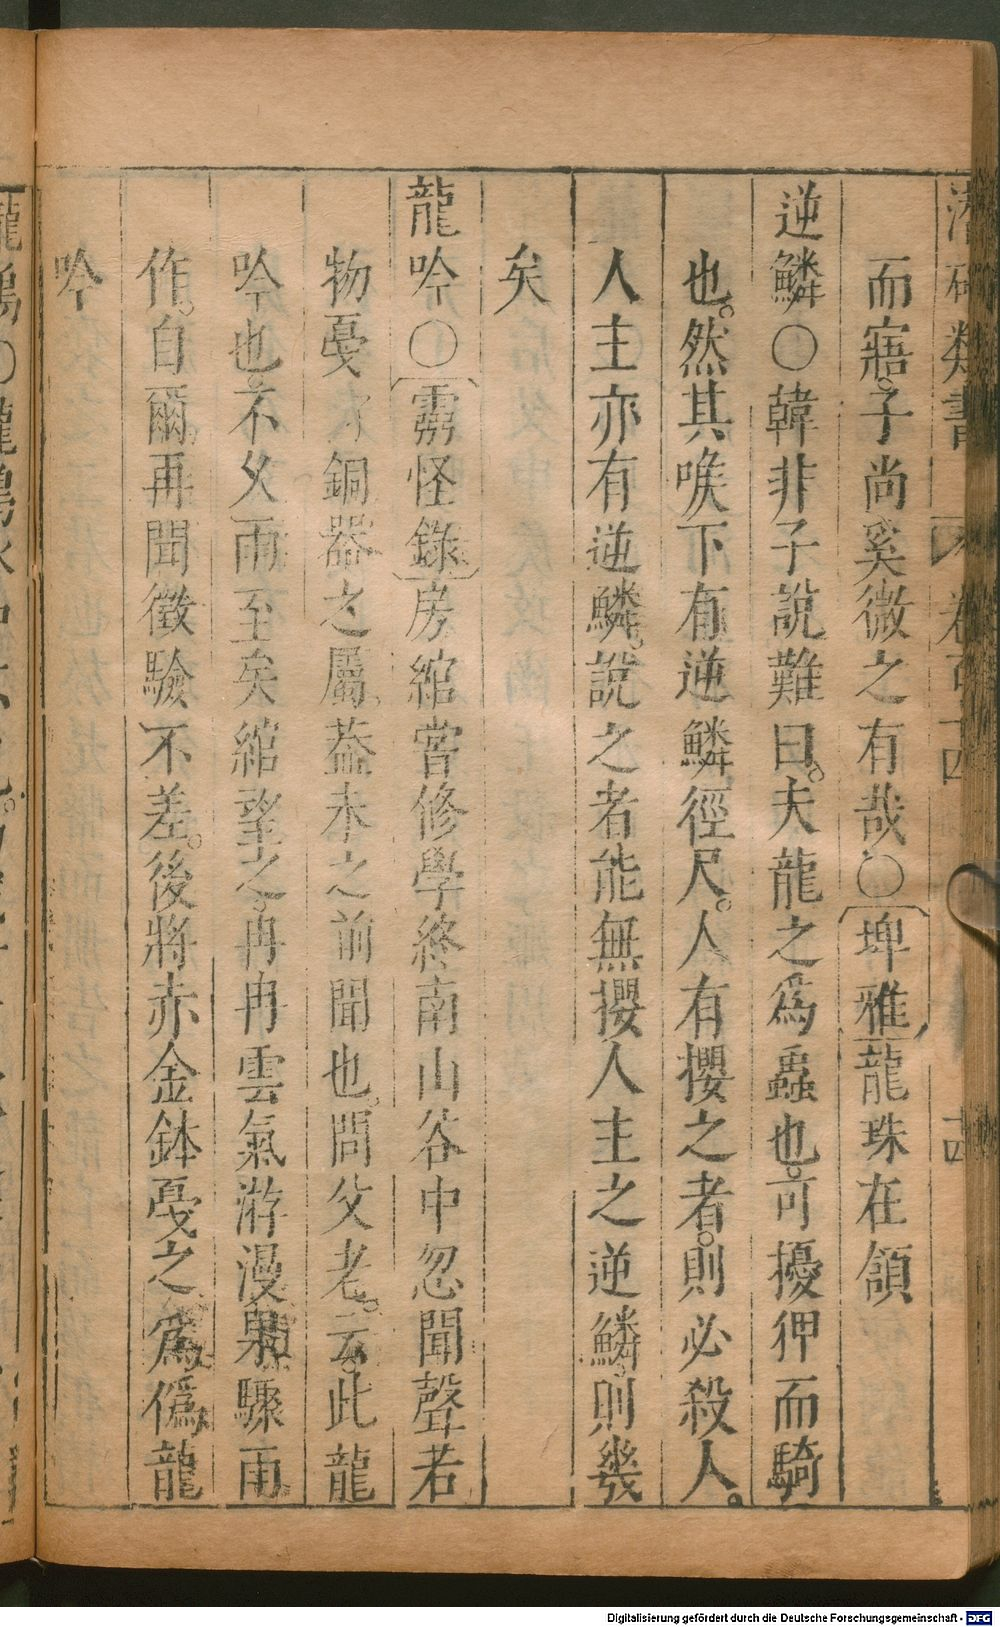 而寤子尚奚微之有哉○埤雅龍珠在頷
逆鱗○韓非子說難曰夫龍之為蟲也可擾狎而騎
也然其喉下有逆鱗徑尺人有攖之者則必殺人
人主亦有逆鱗說之者能無攖人主之逆鱗則幾
矣
龍吟○怪錄房綰嘗修學終南山谷中忽聞聲若
物戞銅器之屬葢未之前聞也問父老云此龍
吟也不乆雨至矣綰望之冉冉雲氣游漫果驟雨
作自爾再聞徵驗不差後將赤金鉢戞之為僞龍
吟
Digitalisierung gefördert durch die Deutsche Forschungsgemeinschaft - DFG